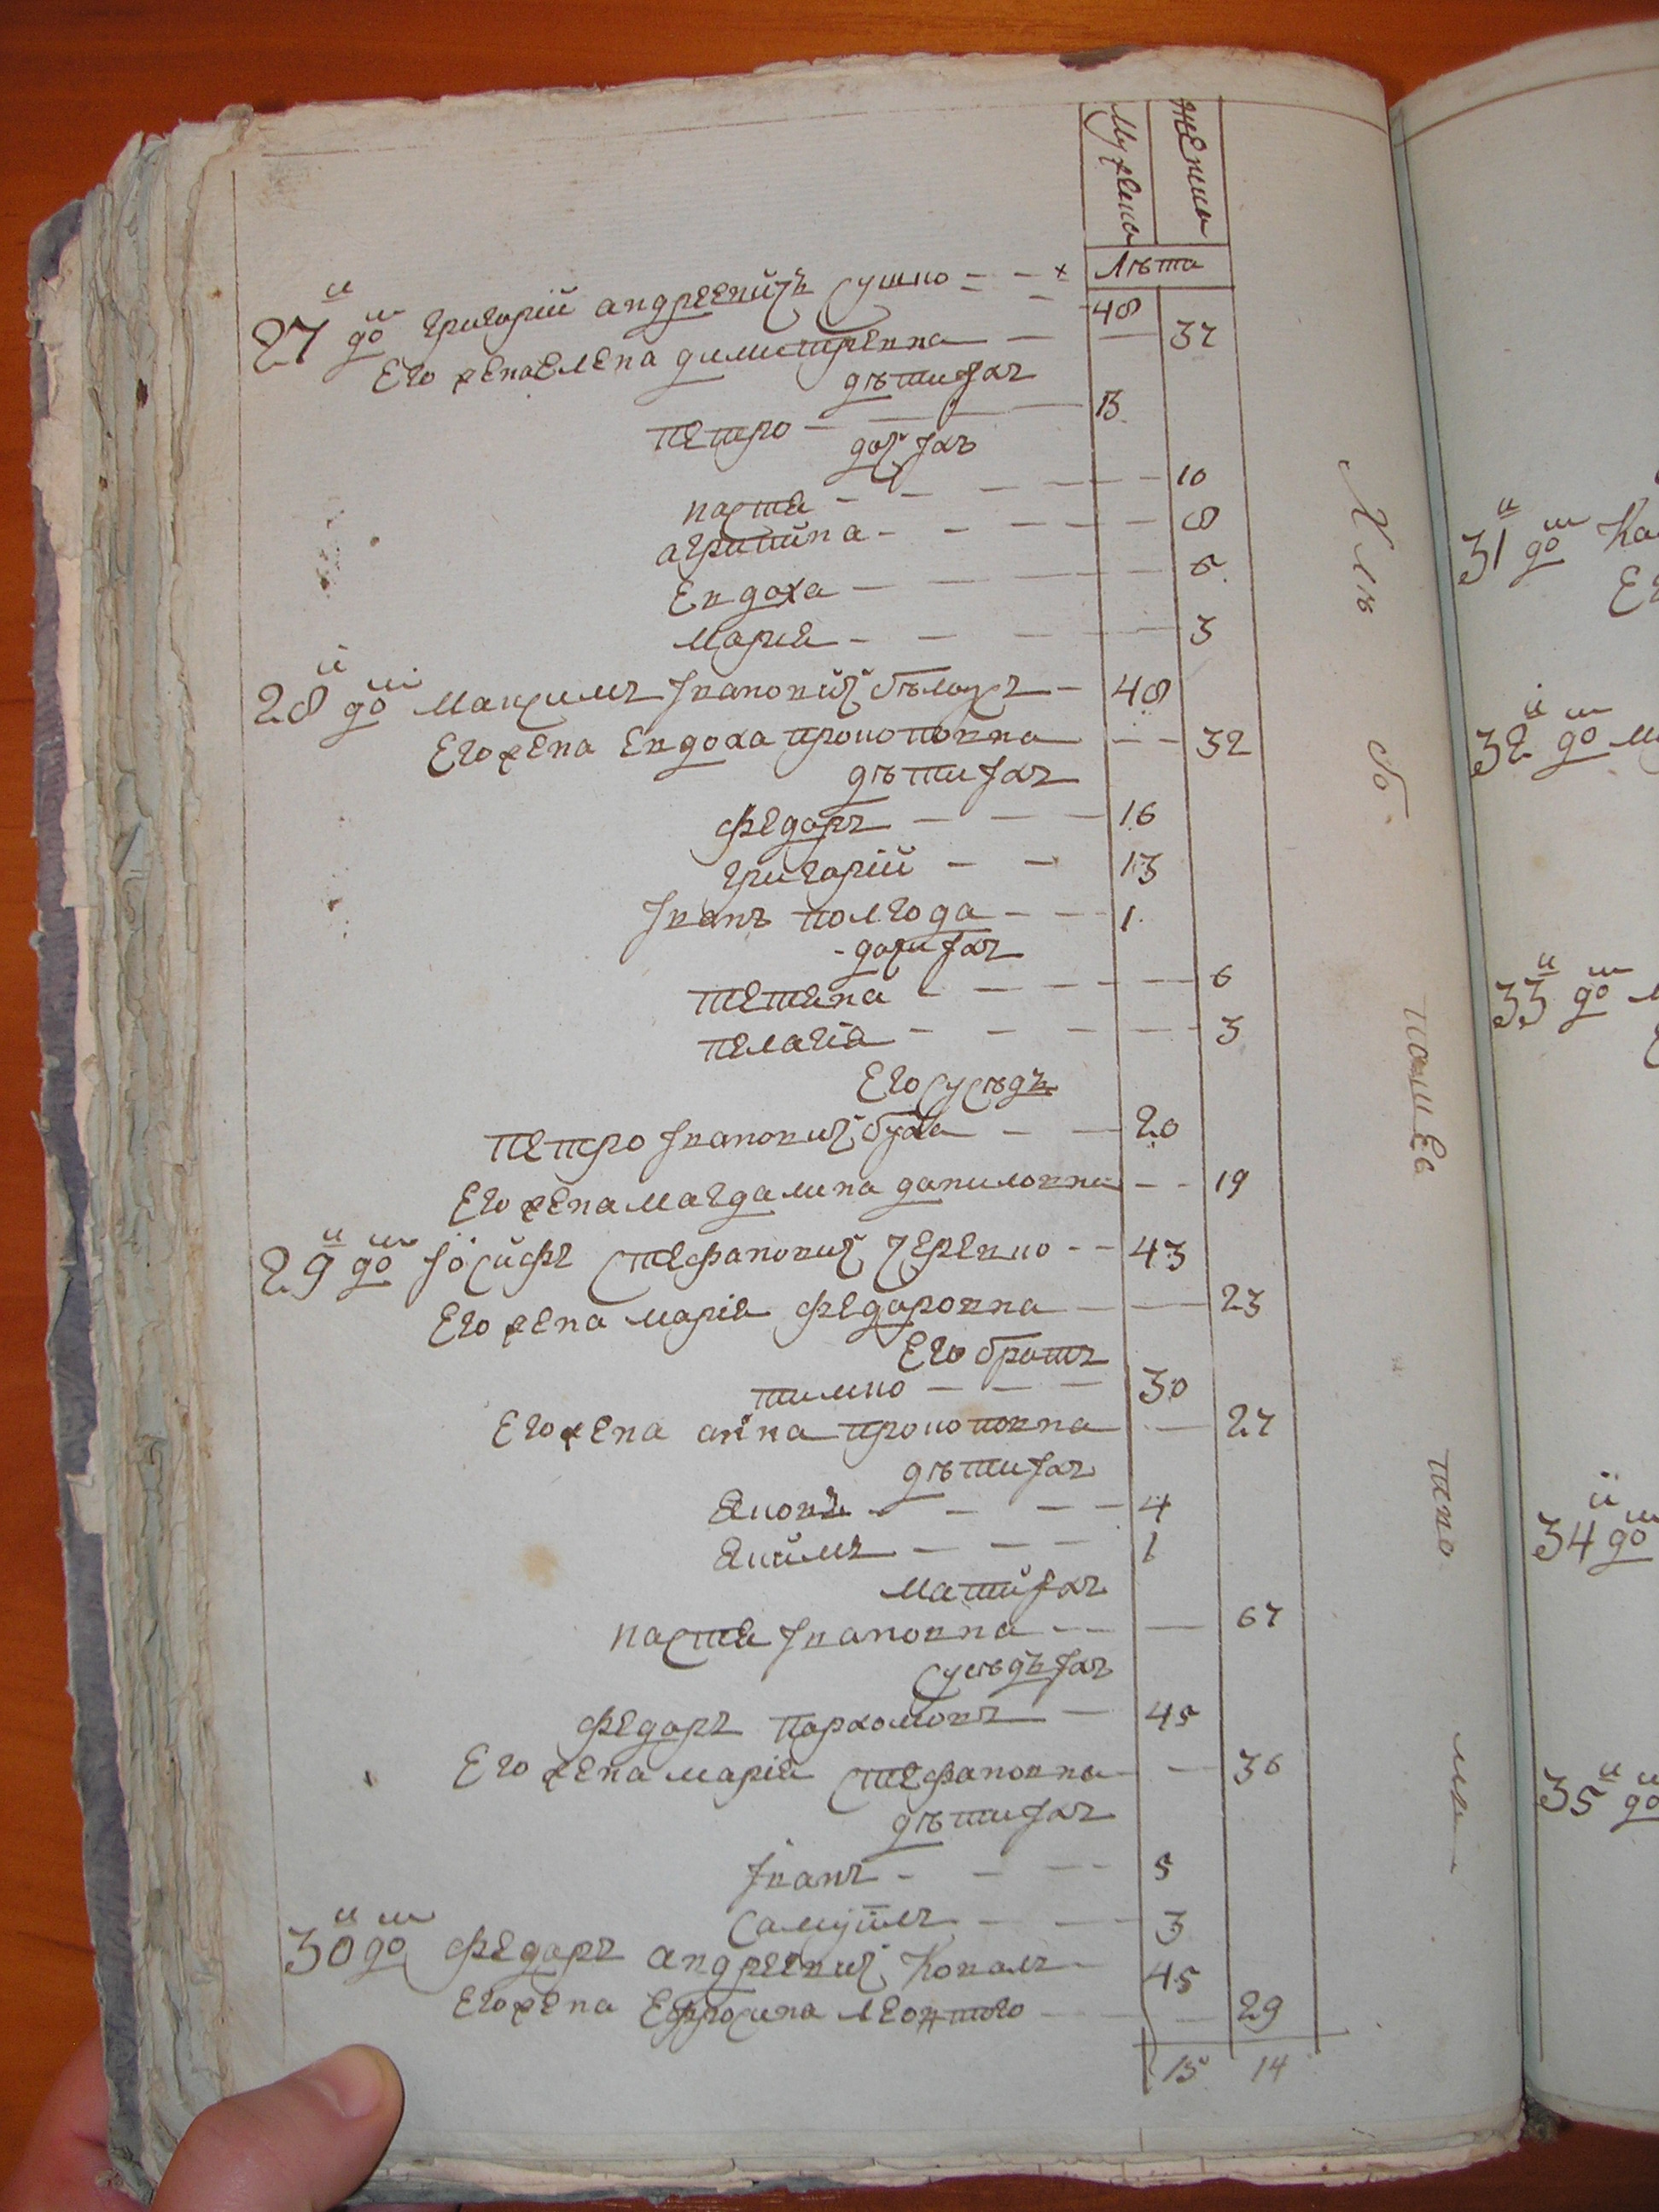 Мужеска Женска
Лѣта
27й до͞м Григорій Андреевичъ Сушко — — × 48
Его жена Елена Димитревна — — 37
дѣти јхъ
Петро — — — 13
дочјхъ
Настя — — — — 10
Агрипина — — — — 8
Евдоха — — — — 6
Мария — — — — 3
28й дош Максимъ Јвановичъ Бѣлоусъ — 48
Его жена Евдоха Прокоповна — — 32
дѣти јхъ
Федоръ — — — 16
Григорій — — 13
Јванъ полгода — — 1
дочи јхъ
Тетяна — — — — 6
Пелагія — — — — 3
Его сусѣдъ
Петро Јвановичъ Буха — — 20
Его жена Магдалина Даниловна — — 19
29й дош Јосифъ Стефановичъ Черевко — — 43
Его жена Марія Федоровна — — 23
Его братъ
Тимко — — — 30
Его жена Анна Прокоповна — 27
дѣти јхъ
Яковъ — — — — 4
Якимъ — — — 1
Мати јхъ
Настя Јвановна — — — 67
Сусѣдъ јхъ
Федоръ Пархомовъ — 45
Его жена Марія Стефановна — — 36
дѣти јхъ
Јванъ — — — 5
Самуилъ — — 3
30й дош Федоръ Андреевичъ Коваль — 45
Его жена Ефросина Леонтого — — 29
15 14
Хлѣ
б
поме
тано
31й дош Ка
Ег
32й дош М
33й дош
34й дош
35й дош